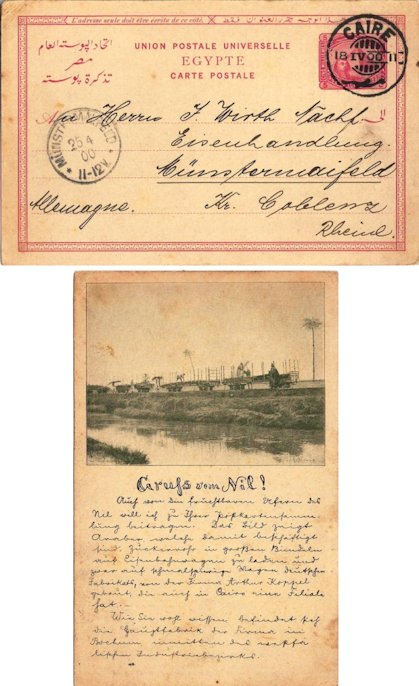 L'adresse seule doit être écrite de ce côté.
اتحاد البوستة العام
مصر
تذكرة بوسته
UNION POSTALE UNIVERSELLE
EGYPTE
CARTE POSTALE
CAIRE
18 IV 00 II
MÜNSTERMAIFELD
25 4
00
11-12V.
An Herrn J. Wirth Nachf.
الى
Eisenhandlung.
Münstermaifeld
Allemagne.
Kr. Coblenz
Rheinl.
Gruss vom Nil!
Auf von den fruchtbaren Ufern des
Nil will ich zu Ihrer Postkartensamm-
lung beitragen. Das Bild zeigt
Araber welche damit beschäftigt
sind, Zuckerrohr in großen Bündeln
auf Eisenbahnwagen zu laden und
zwar auf schmalspurige Wagen deutschen
Fabrikats, von der Firma Arthur Koppel
gebaut, die auch in Cairo eine Filiale
hat.
Wie Sie wohl wissen befindet sich
die Hauptfabrik der Firma in
Bochum inmitten des westfä-
lischen Industriebezirks.